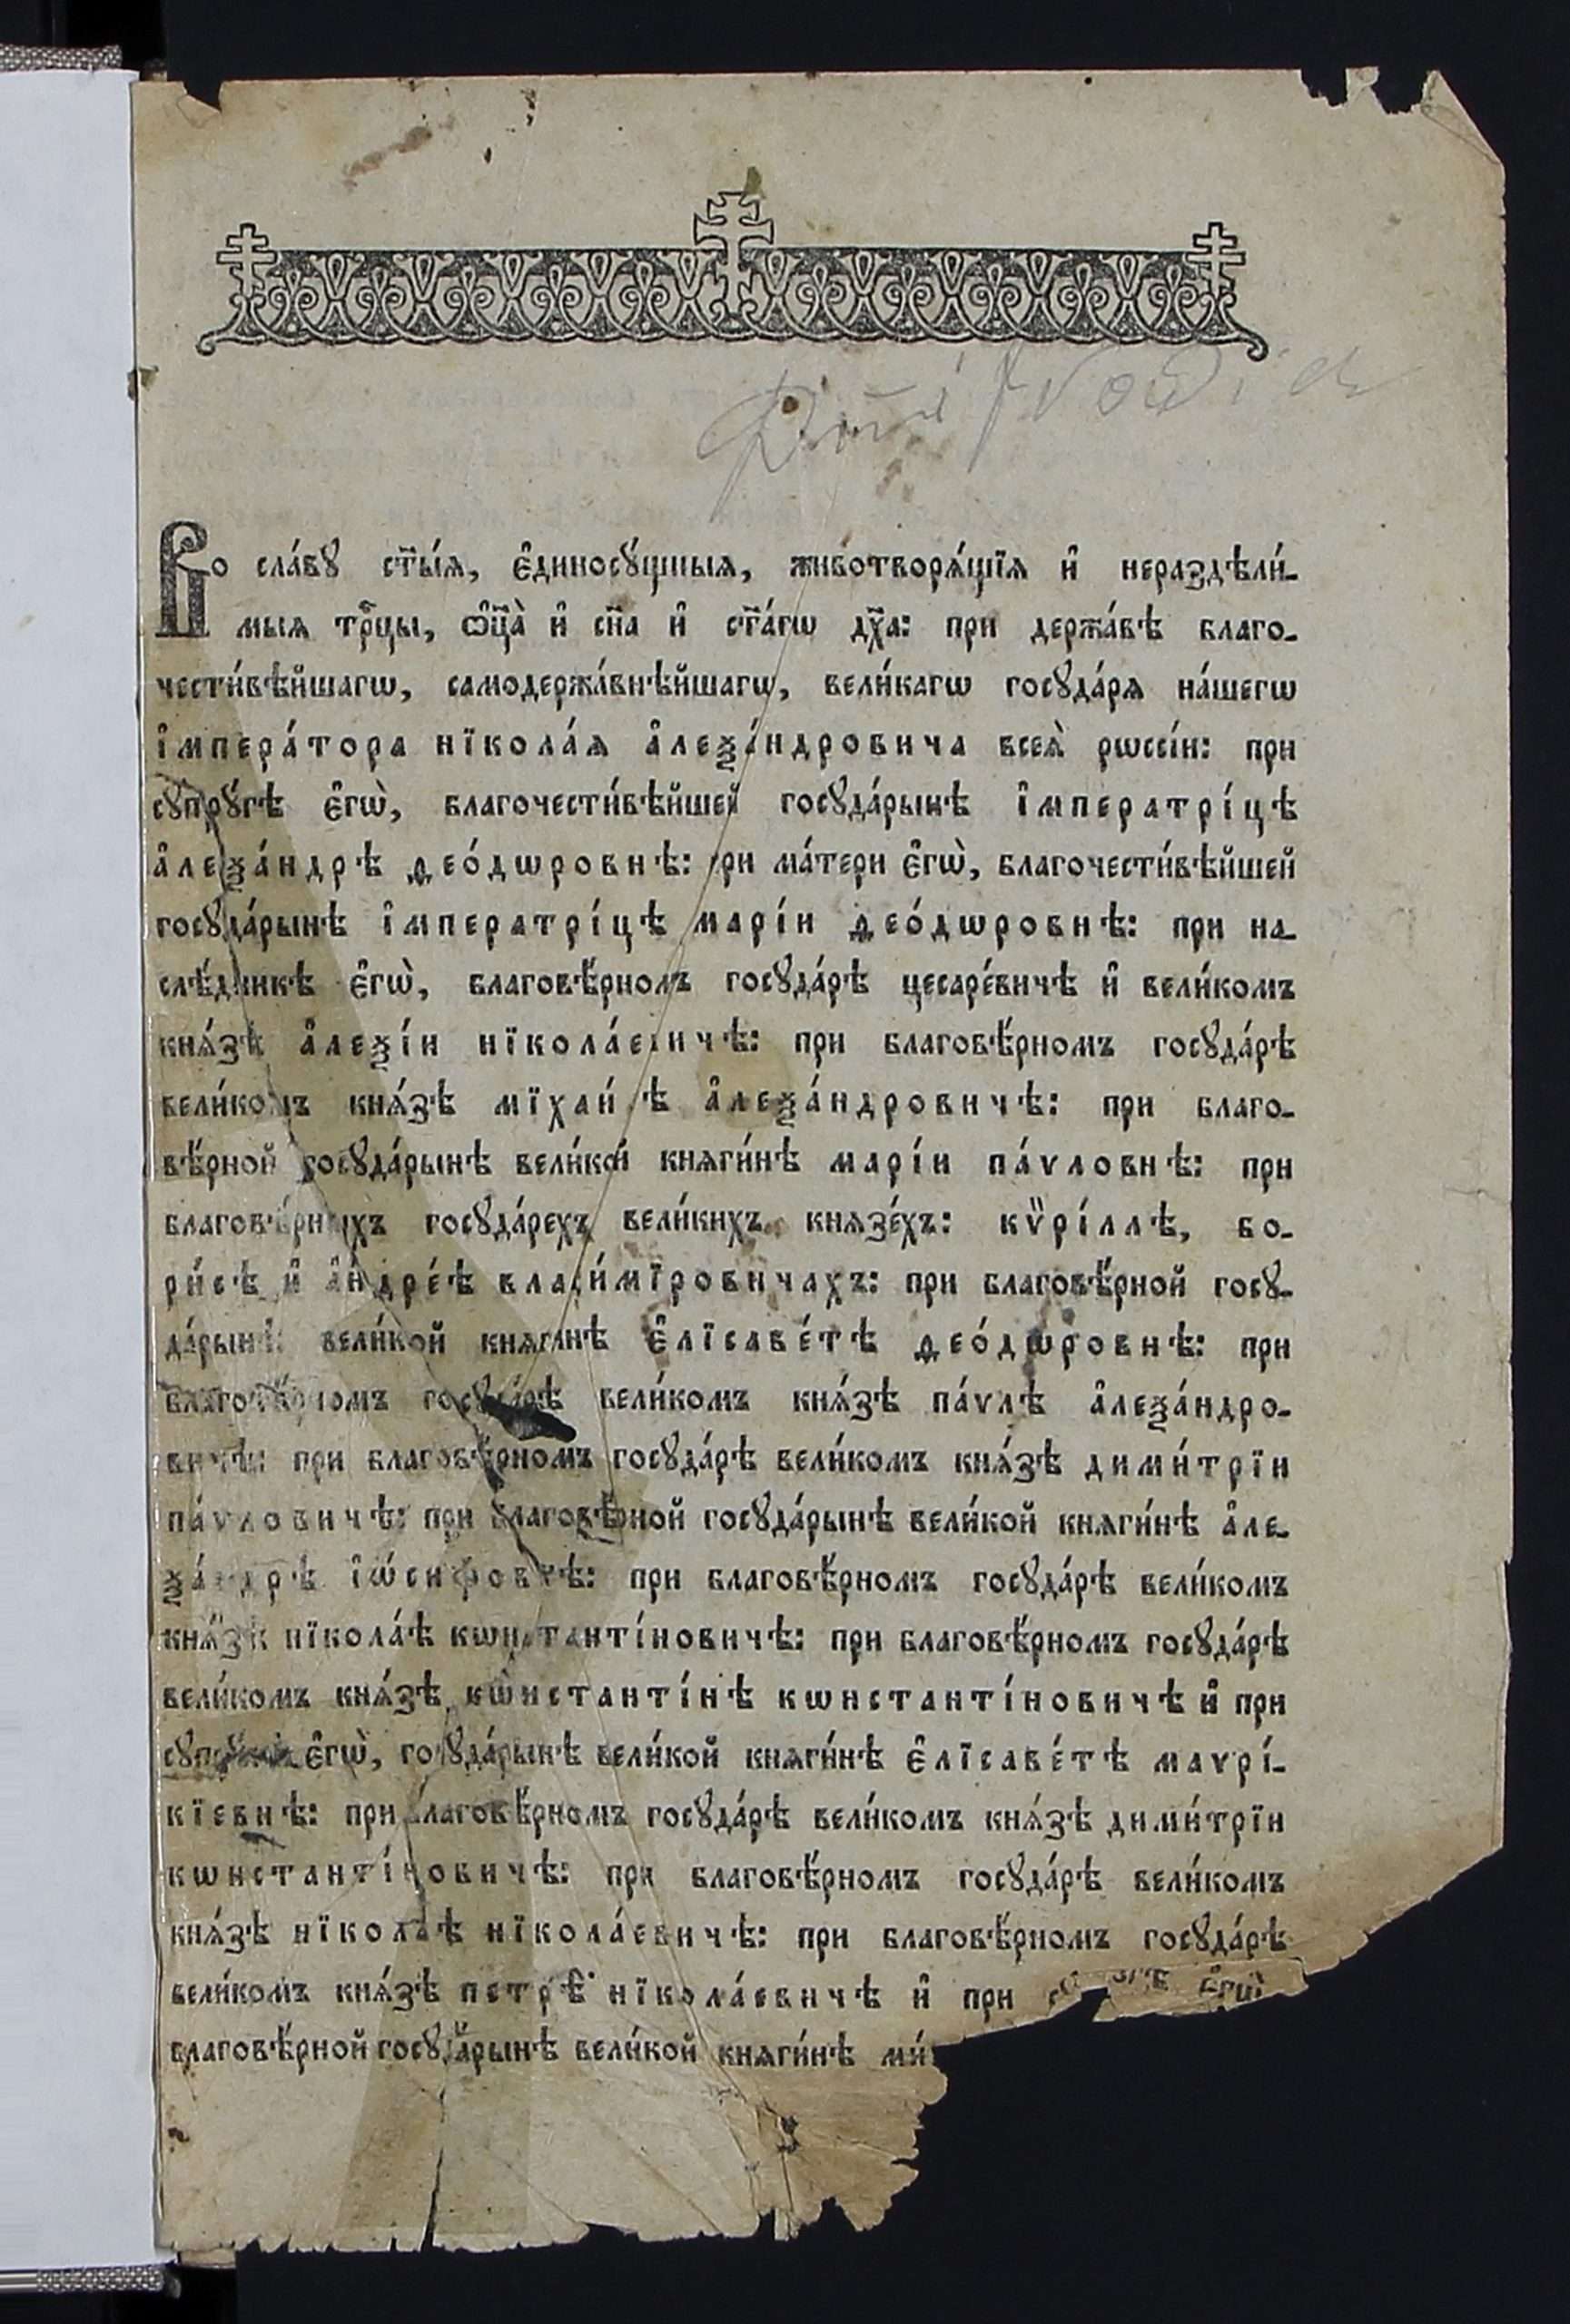 Во сла́вꙋ ст҃ы́ѧ, є҆диносꙋ́щныѧ, животворѧ́щїѧ и҆ нераздѣли́-
мыѧ трⷪ҇цы, ѻ҆ц҃а̀ и҆ сн҃а и҆ ст҃а́гѡ дх҃а: при держа́вѣ благо-
чести́вѣйшагѡ, самодержа́внѣйшагѡ, вели́кагѡ госꙋда́рѧ на́шегѡ
і҆мпера́тора нїкола́ѧ а҆леѯа́ндровича всеѧ̀ рѡссі́и: при
сꙋпрꙋ́гѣ є҆гѡ̀, благочести́вѣйшей госꙋда́рынѣ і҆мператрі́цѣ
а҆леѯа́ндрѣ ѳео́дѡровнѣ: при ма́тери є҆гѡ̀, благочести́вѣйшей
госꙋда́рынѣ і҆мператрі́цѣ марі́и ѳео́дѡровнѣ: при на-
слѣ́дникѣ є҆гѡ̀, благовѣ́рномъ госꙋда́рѣ цесаре́вичѣ и҆ вели́комъ
кнѧ́зѣ а҆леѯі́и нїкола́евичѣ: при благовѣ́рномъ госꙋда́рѣ
вели́комъ кнѧ́зѣ мїхаи́лѣ а҆леѯа́ндровичѣ: при благо-
вѣ́рной госꙋда́рынѣ вели́кой кнѧги́нѣ марі́и па́ѵловнѣ: при
благовѣ́рныхъ госꙋда́рехъ вели́кихъ кнѧзе́хъ: кѷрі́ллѣ, бо-
ри́сѣ и҆ а҆ндре́ѣ влади́мїровичахъ: при благовѣ́рной госꙋ-
да́рынѣ вели́кой кнѧги́нѣ є҆лїсаве́тѣ ѳео́дѡровнѣ: при
благовѣ́рномъ госꙋда́рѣ вели́комъ кнѧ́зѣ па́ѵлѣ а҆леѯа́ндро-
вичѣ: при благовѣ́рномъ госꙋда́рѣ вели́комъ кнѧ́зѣ дими́трїи
па́ѵловичѣ: при благовѣ́рной госꙋда́рынѣ вели́кой кнѧги́нѣ а҆ле-
ѯа́ндрѣ і҆ѡ́сифовнѣ: при благовѣ́рномъ госꙋда́рѣ вели́комъ
кнѧ́зѣ нїкола́ѣ кѡнстанті́новичѣ: при благовѣ́рномъ госꙋда́рѣ
вели́комъ кнѧ́зѣ кѡнстанті́нѣ кѡнстанті́новичѣ и҆ при
сꙋпрꙋ́гѣ є҆гѡ̀, госꙋда́рынѣ вели́кой кнѧги́нѣ є҆лїсаве́тѣ маѵрі́-
кїевнѣ: при благовѣ́рномъ госꙋда́рѣ вели́комъ кнѧ́зѣ дими́трїи
кѡнстанті́новичѣ: при благовѣ́рномъ госꙋда́рѣ вели́комъ
кнѧ́зѣ нїкола́ѣ нїкола́евичѣ: при благовѣ́рномъ госꙋда́рѣ
вели́комъ кнѧ́зѣ петрѣ̀ нїкола́евичѣ и҆ при є҆гѡ̀
благовѣ́рной госꙋда́рынѣ вели́кой кнѧги́нѣ